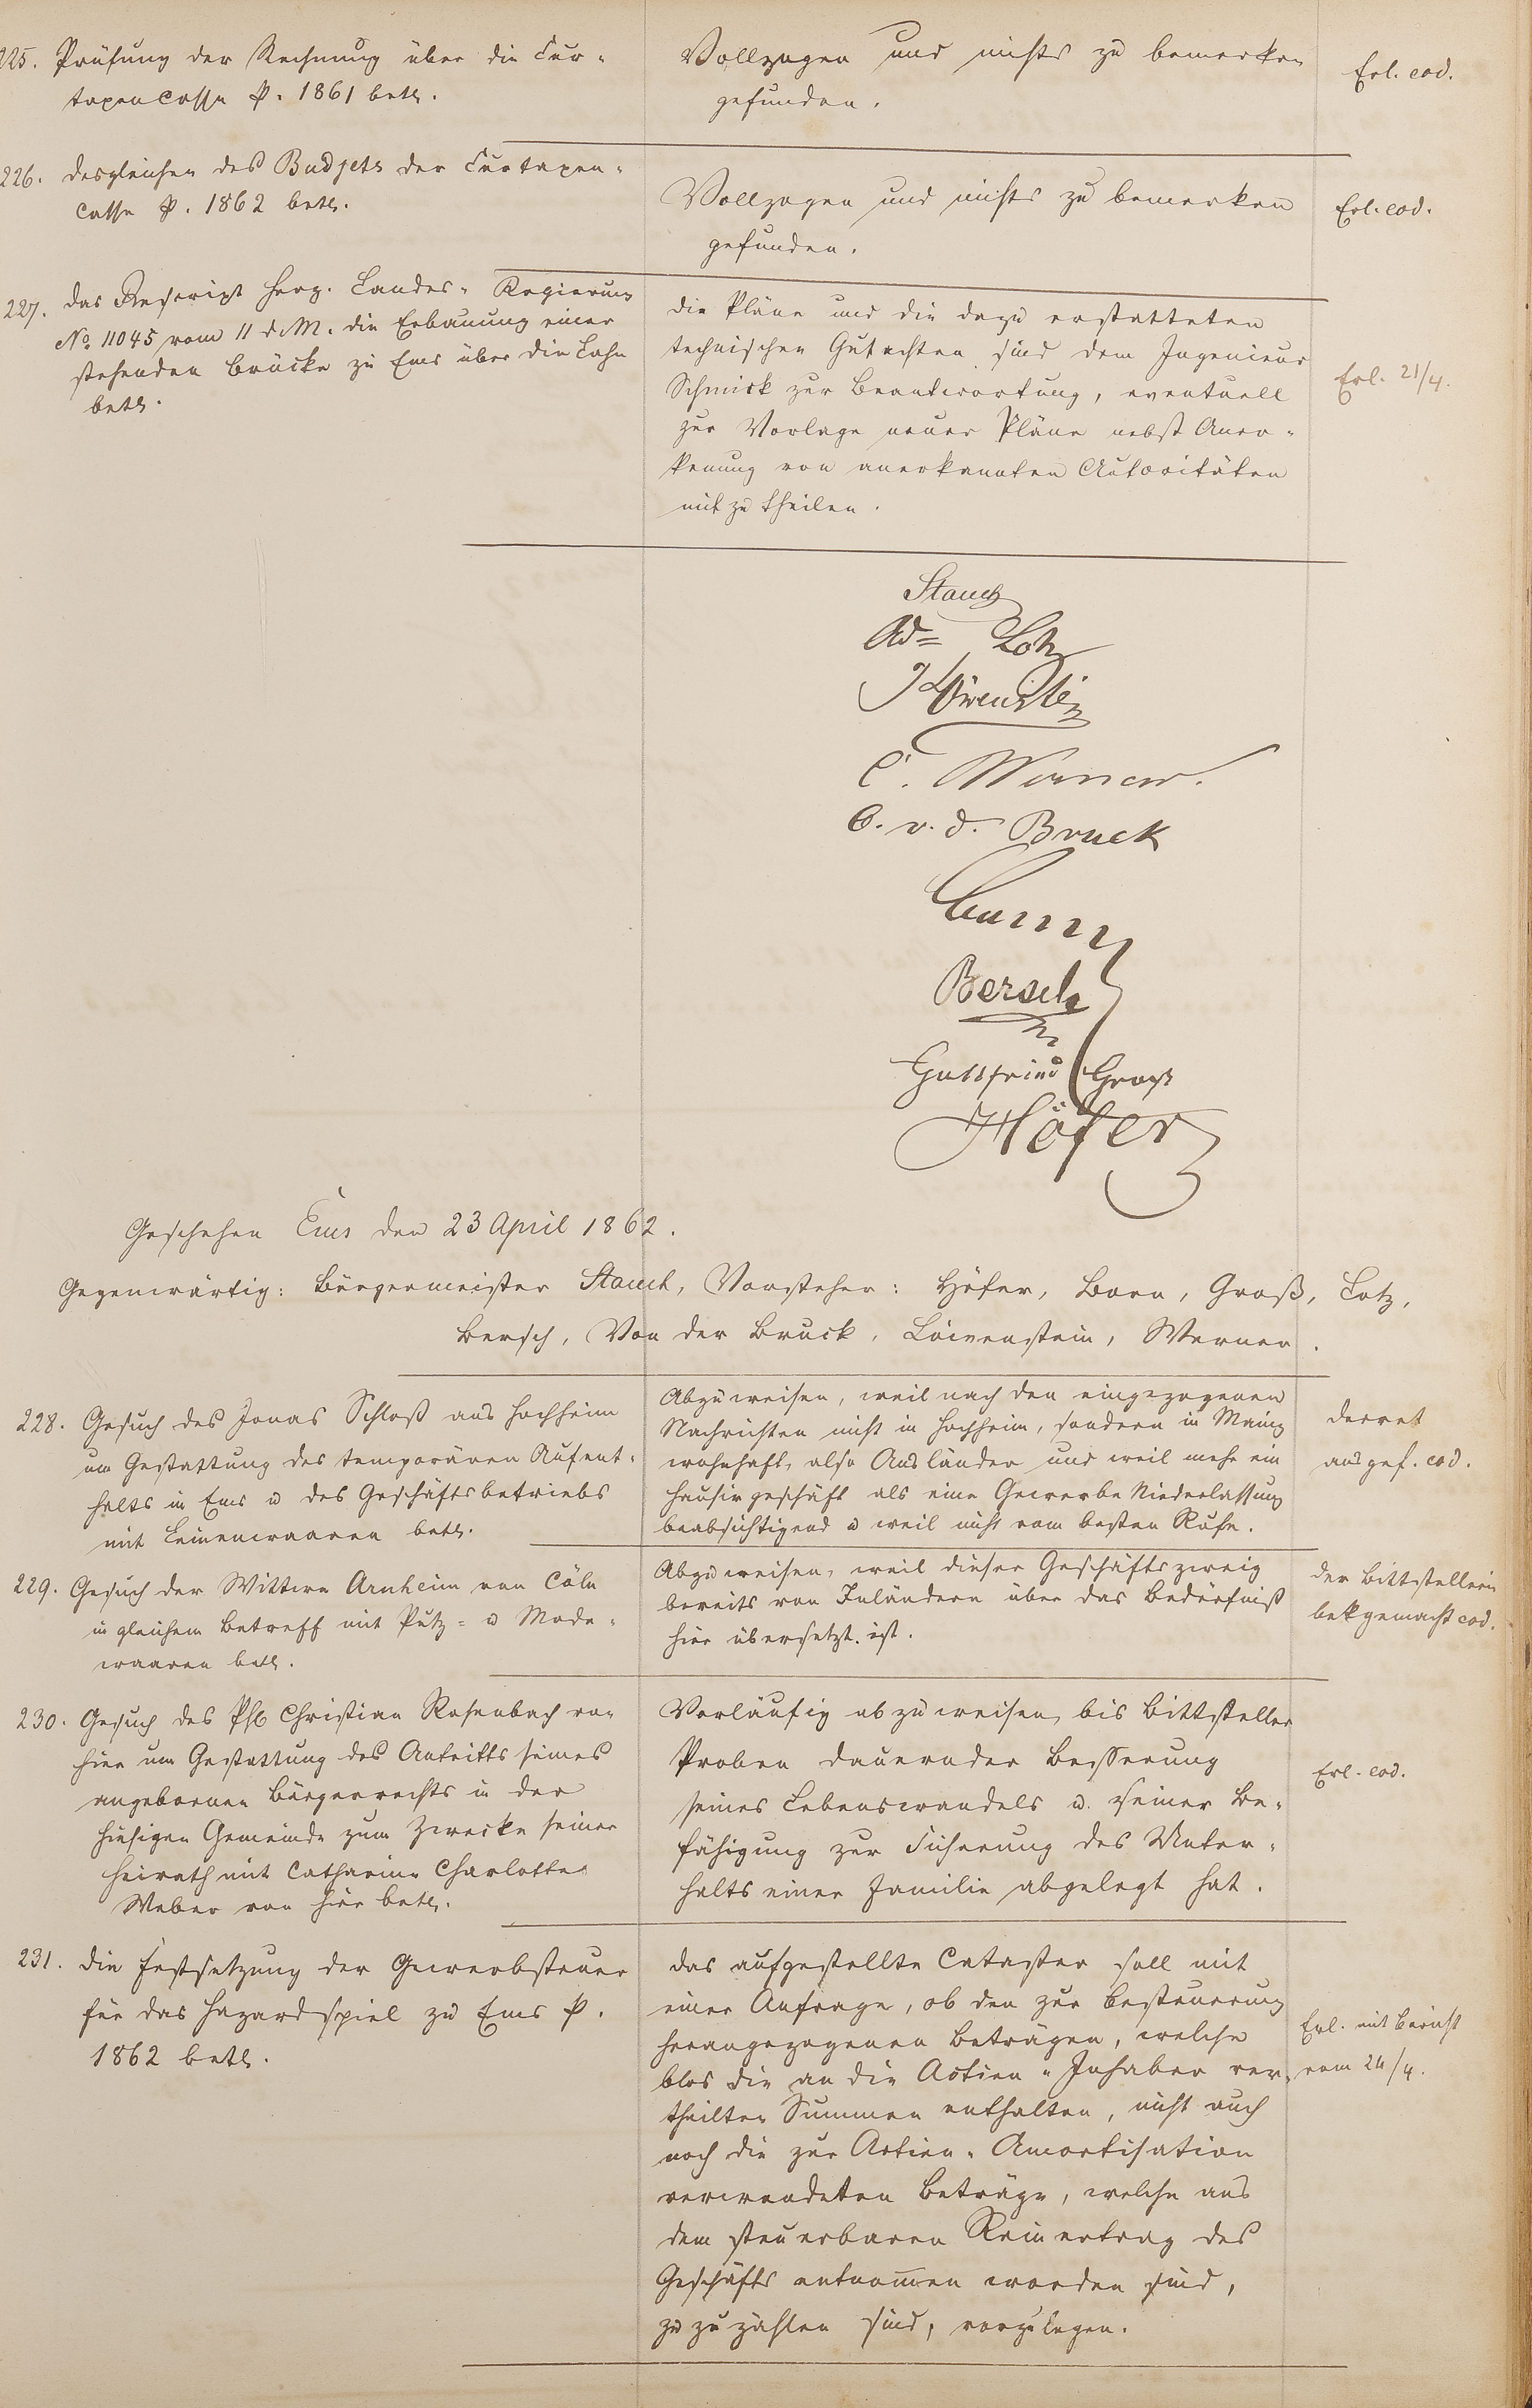 225. Prüfung der Rechnung über die Cur-
taxencasse p. 1861 betr.
Vollzogen und nichts zu bemerken
gefunden.
Erl. eod.
226. desgleichen des Budjets der Curtaxen-
casse p. 1862 betr.
Vollzogen und nichts zu bemerken
gefunden.
Erl. eod.
227. das Rescript Herz. Landes-Regierung
No. 11045 vom 11 d. M. die Erbauung einer
stehenden Brücke zu Ems über die Lahn
betr.
die Pläne und die dazu erstatteten
technischen Gutachten sind dem Ingenieur
Schmick zur Beantwortung, eventuell
zur Vorlage neuer Pläne nebst Aner-
kenung von anerkannten Autoritäten
mit zu theilen.
Erl. 21/4.
Stauch
Ad= Lotz
J Löwenstein
C. Werner.
C. v. d. Bruck
Bersch
Gottfried Groß
Höfer
Geschehen Ems den 23 April 1862.
Gegenwärtig: Bürgermeister Stauch, Vorsteher: Höfer, Born, Groß, Lotz,
Bersch, Von der Bruck, Löwenstein, Werner.
228. Gesuch des Jonas Schloß aus Hochheim
um Gestattung des temporären Aufent-
halts in Ems u des Geschäftsbetriebs
mit Leinenwaaren betr.
Abzuweisen, weil nach den eingezogenen
Nachrichten nicht in Hochheim, sondern in Mainz
wohnhaft, also Ausländer und weil mehr ein
Hausirgeschäft als eine Gewerbe Niederlassung
beabsichtigend u weil nicht vom besten Rufe.
decret
ausgef. eod.
229. Gesuch der Wittwe Arnheim von Cöln
in gleichem Betreff mit Putz- u Mode-
waaren betr.
Abzuweisen, weil dieser Geschäftszweig
bereits von Inländern über das Bedürfniß
hier übersetzt ist.
der Bittstellerin
bekgemacht eod.
230. Gesuch des Phl Christian Rosenbach von
hier um Gestattung des Antritts seines
angebornen Bürgerrechts in der
hiesigen Gemeinde zum Zwecke seiner
Heirath mit Catharine Charlotte
Weber von hier betr.
Vorläufig abzuweisen, bis Bittsteller
Proben dauernder Besserung
seines Lebenswandels u. seiner Be-
fähigung zur Sicherung des Unter-
halts einer Familie abgelegt hat.
Erl. eod.
231. die Festsetzung der Gewerbsteuer
für das Hazardspiel zu Ems p.
1862 betr.
das aufgestellte Cataster soll mit
einer Anfrage, ob den zur Besteuerung
herangezogenen Beträgen, welche
blos die an die Actien-Inhaber ver-
theilten Summen enthalten, nicht auch
noch die zur Actien-Amortisation
verwendeten Beträge, welche aus
dem steuerbaren Reinertrag des
Geschäfts entnommen worden sind,
zu zuzählen sind, vorzulegen.
Erl. mit Bericht
vom 24/4.